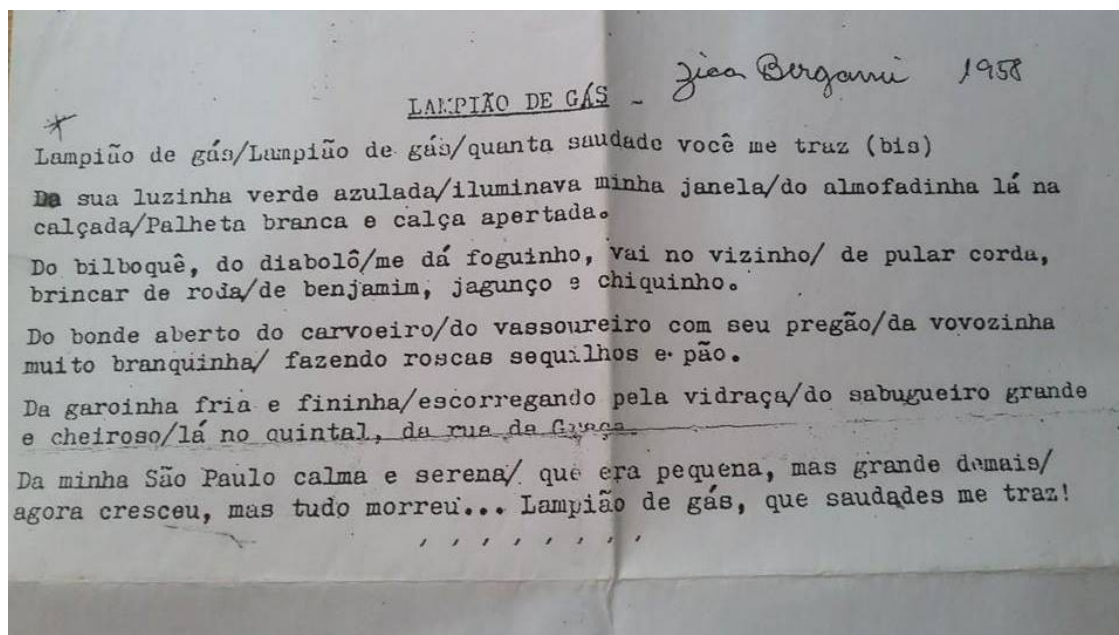 Zica Bergami 1958
LAMPIÃO DE GÁS -
*
Lampião de gás/Lampião de gás/quanta saudade você me traz (bis)
Da sua luzinha verde azulada/iluminava minha janela/do almofadinha lá na
calçada/Palheta branca e calça apertada.
Do bilboquê, do diabolô/me dá foguinho, vai no vizinho/ de pular corda,
brincar de roda/de benjamim, jagunço e chiquinho.
Do bonde aberto do carvoeiro/do vassoureiro com seu pregão/da vovozinha
muito branquinha/ fazendo roscas sequilhos e pão.
Da garoinha fria e fininha/escorregando pela vidraça/do sabugueiro grande
e cheiroso/lá no quintal, da rua da Graça.
Da minha São Paulo calma e serena/ que era pequena, mas grande demais/
agora cresceu, mas tudo morreu... Lampião de gás, que saudades me traz!
, , , , , , , ,